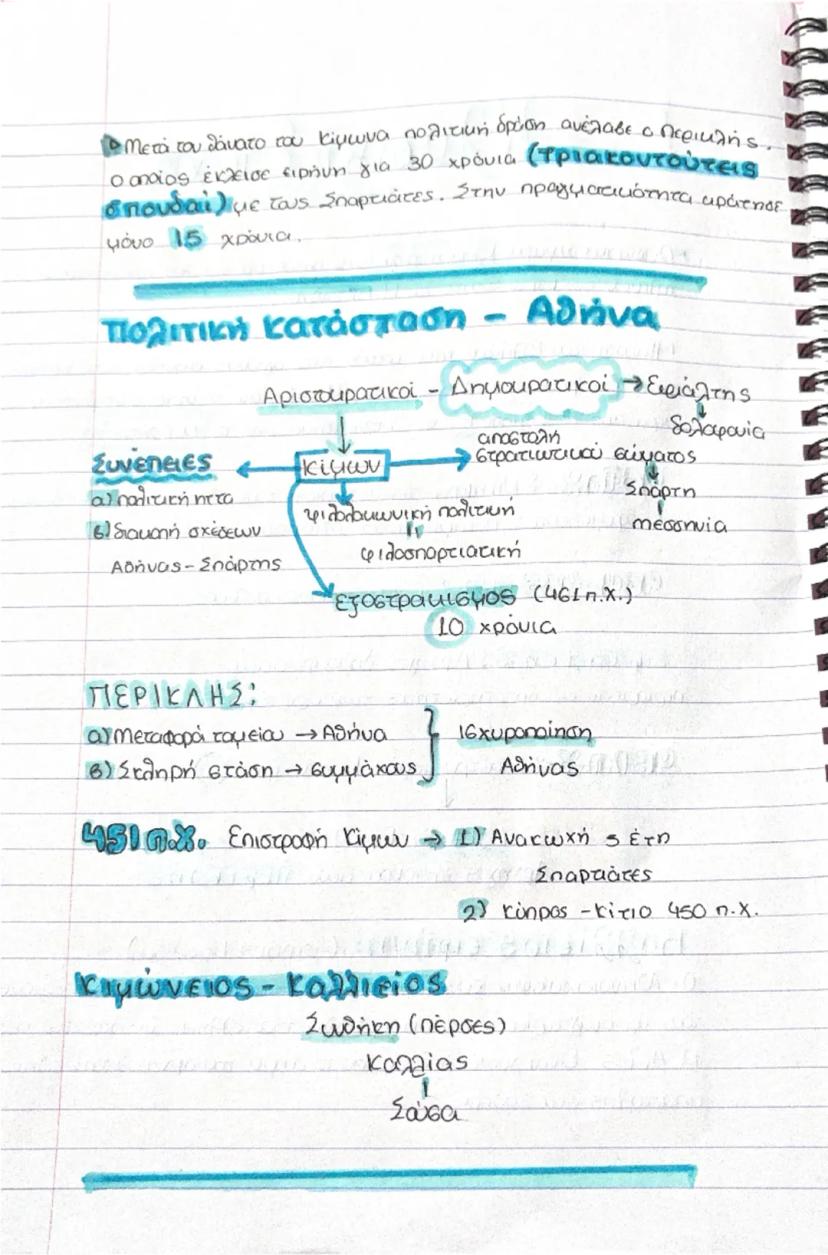 Μετά τον θάνατο του Κίμωνα πολιτική δράση ανέλαβε ο Περικλής.
ο οποίος έκλεισε ειρήνη για 30 χρόνια (Τριακοντούτεις
σπονδαί) με τους Σπαρτιάτες. Στην πραγματικότητα κράτησε
μόνο 15 χρόνια.
Πολιτική κατάσταση - Αθήνα
Αριστοκρατικοί - Δημοκρατικοί → Εφιάλτης
δολοφονία
αποστολή
Συνέπειες ← Κίμων → στρατιωτικού σώματος
α) πολιτική ήττα
φιλολακωνική πολιτική
Σπάρτη
β) διακοπή σχέσεων
φιλοσπαρτιατική
Μεσσηνία
Αθήνας - Σπάρτης
εξοστρακισμός (461 π.Χ.)
10 χρόνια
ΠΕΡΙΚΛΗΣ:
α) Μεταφορά ταμείου → Αθήνα } Ισχυροποίηση
β) Σκληρή στάση → συμμάχους } Αθήνας
451 π.Χ. Επιστροφή Κίμων → 1) Ανακωχή 5 έτη
Σπαρτιάτες
2) Κύπρος - Κίτιο 450 π.Χ.
Κιμώνειος - Καλλίειος
Συθήκη (Πέρσες)
Καλλίας
Σούσα